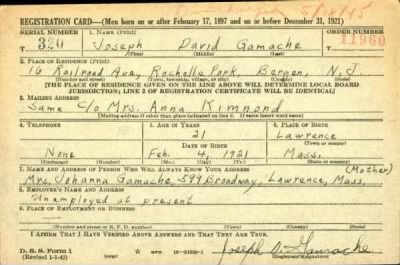 5/18/45
REGISTRATION CARD—(Men born on or after February 17, 1897 and on or before December 31, 1921)
SERIAL NUMBER 1. NAME (Print) ORDER NUMBER
T 320 Joseph David Gamache 11960
(First) (Middle) (Last)
2. PLACE OF RESIDENCE (Print)
16 Railroad Ave, Rochelle Park Bergen, N.J.
(Number and street) (Town, township, village, or city) (County) (State)
[THE PLACE OF RESIDENCE GIVEN ON THE LINE ABOVE WILL DETERMINE LOCAL BOARD
JURISDICTION; LINE 2 OF REGISTRATION CERTIFICATE WILL BE IDENTICAL]
3. MAILING ADDRESS
Same c/o Mrs. Anna Kimmond
[Mailing address if other than place indicated on line 2. If same insert word same]
4. TELEPHONE 5. AGE IN YEARS 6. PLACE OF BIRTH
21 Lawrence
DATE OF BIRTH (Town or county)
None Feb. 4, 1921 Mass.
(Exchange) (Number) (Mo.) (Day) (Yr.) (State or country)
7. NAME AND ADDRESS OF PERSON WHO WILL ALWAYS KNOW YOUR ADDRESS (Mother)
Mrs. Johanna Gamache, 599 Broadway, Lawrence, Mass.
8. EMPLOYER'S NAME AND ADDRESS
Unemployed at present
9. PLACE OF EMPLOYMENT OR BUSINESS
(Number and street or R. F. D. number) (Town) (County) (State)
I AFFIRM THAT I HAVE VERIFIED ABOVE ANSWERS AND THAT THEY ARE TRUE.
D. S. S. Form 1
(Revised 1-1-42) (over)
Joseph D. Gamache